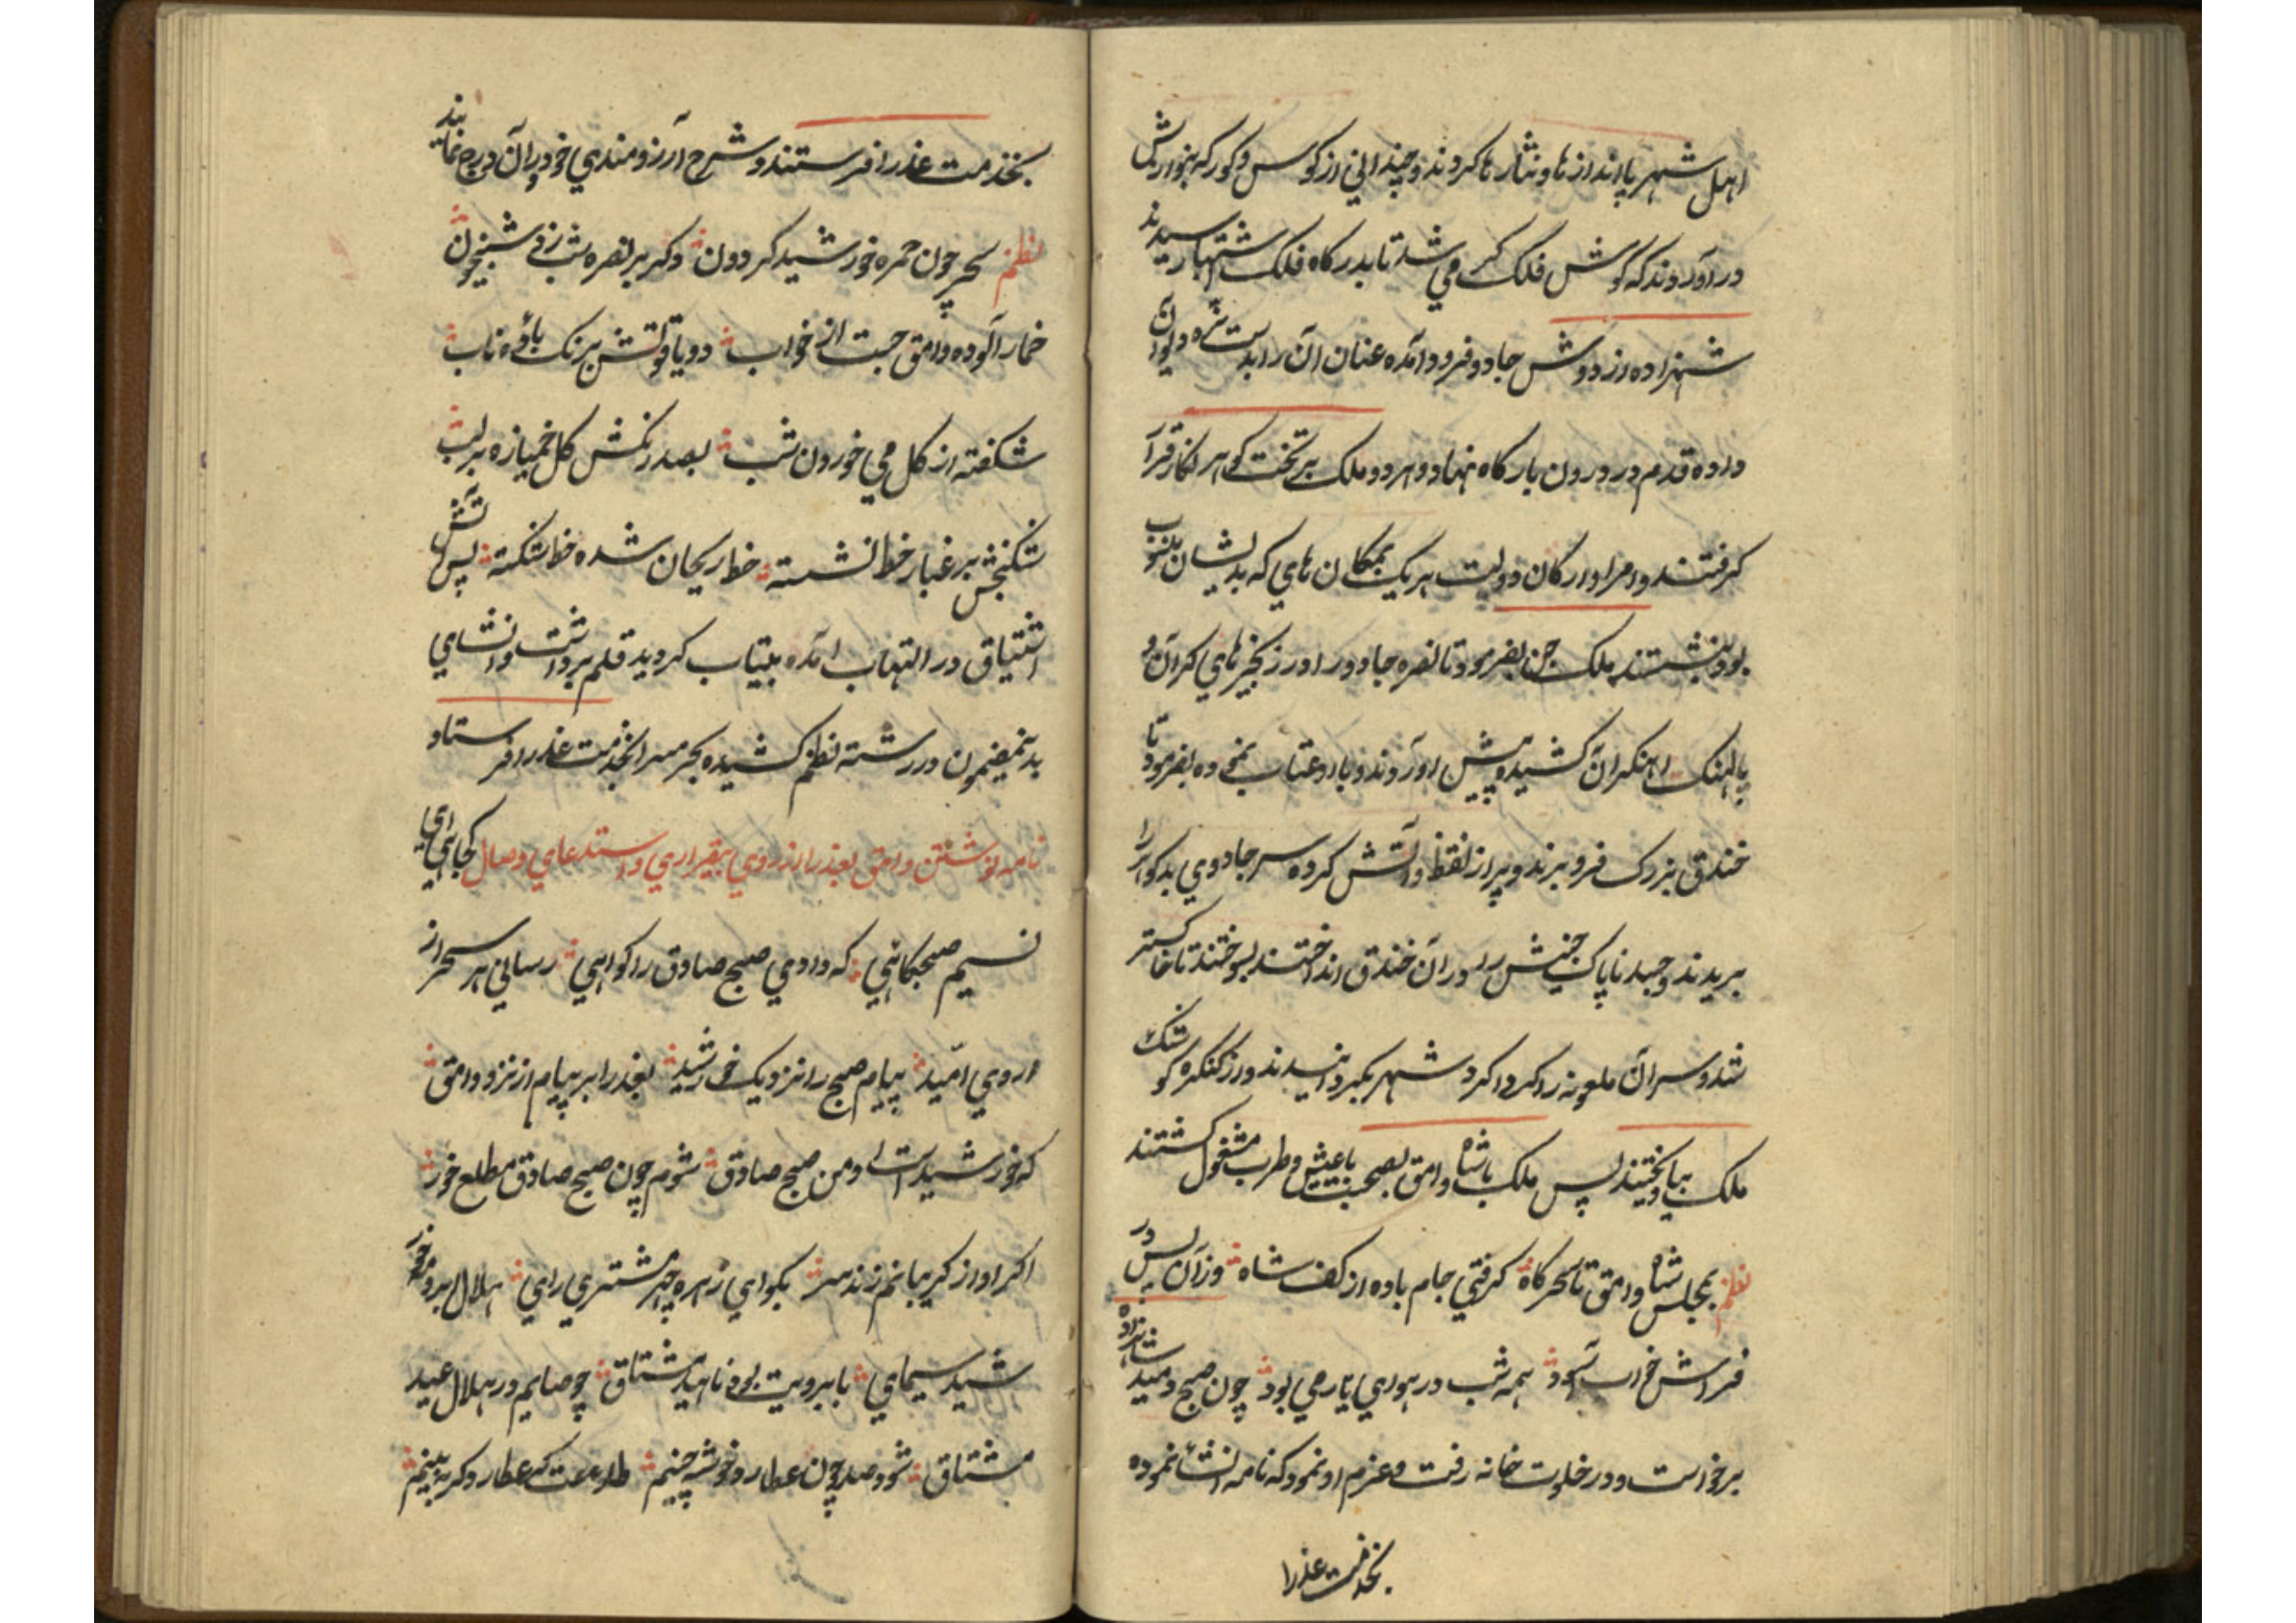 اهل شهر پااندازها و نثارها کردند و چندانی از کوس و کورکه بنوازش
در آوردند که گوش فلک کر می شد تا بدرگاه فلک اشتهار رسیدند
شهزاده از دوش جادو فرود آمده عنان آن را بدست نره دیوان
داده قدم در درون بارگاه نهاد و هر دو ملک بر تخت گوهر نگار قرار
گرفتند و امرا و ارکان دولت هر یک بمکان های که بدیشان منسوب
بود بنشستند ملک جن بفرمود تا نصره جادو را در زنجیرهای گران و
پالهنک آهنگران کشیده پیش آوردند و با او عتاب نموده بفرمود تا
خندق بزرگ فرو برند و پر از نفط و آتش کرده سر جادوی بدگوهر را
بریدند و جسد ناپاک جنیش را در آن خندق انداختند بسوختند تا خاکستر
شد و سر آن ملعونه را گرداگرد شهر بگردانیدند و از کنگره کوشک
ملک بیاویختند پس ملک با شاه وامق بصحبت با عیش و طرب مشغول گشتند
نظم بمجلس شاه وامق تا سحرگاه گرفتی جام باده از کف شاه وز آن پس در
فراش خواب آسود همه شب در هوای یار می بود چون صبح دمید شاهزاده
برخواست و در خلوت خانه رفت و عزم او نمود که نامه انشا نموده
بخدمت عذرا
بخدمت عذرا فرستند و شرح آرزومندی خود در آن درج نمایند
نظم سحر چون حمره خورشید گردون دگر بر نصره شب زد شبیخون
خمار آلوده وامق جست از خواب دو یاقوتش برنگ باده ناب
شکفته از گل می خوردن شب بصد رنگش گل خمیازه بر لب
شکنجش بر غبار خط نشسته خط ریحان شده خط شکسته پس آتش
اشتیاق در التهاب آمده بیتاب گردید قلم برداشت و انشای
بدینمضمون در رشته نظم کشیده بحرمسرا بخدمت عذرا فرستاد
نامه نوشتن وامق بعذرا از روی بیقراری و استدعای وصال کجایی ای
نسیم صبحگاهی که دادی صبح صادق را گواهی رسانی هر سحر از
از روی امّید پیام صبح را نزدیک خورشید بعذرا بر پیام از نزد وامق
که خورشید است او من صبح صادق شوم چون صبح صادق مطلع خور
اگر او از گریبانم زند سر بگو ای زهره چهر مشتری رای هلال ابرو مه خور
شید سیمای با برویت بود ناهید مشتاق چو صایم در هلال عید
مشتاق شود صد چون عطارد خوشه چینم طلعت که عطارد گر ببینم